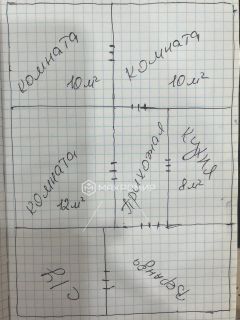 комната
10м²
комната
10м²
комната
12м²
Прихожая
кухня
8м²
с/у
Веранда